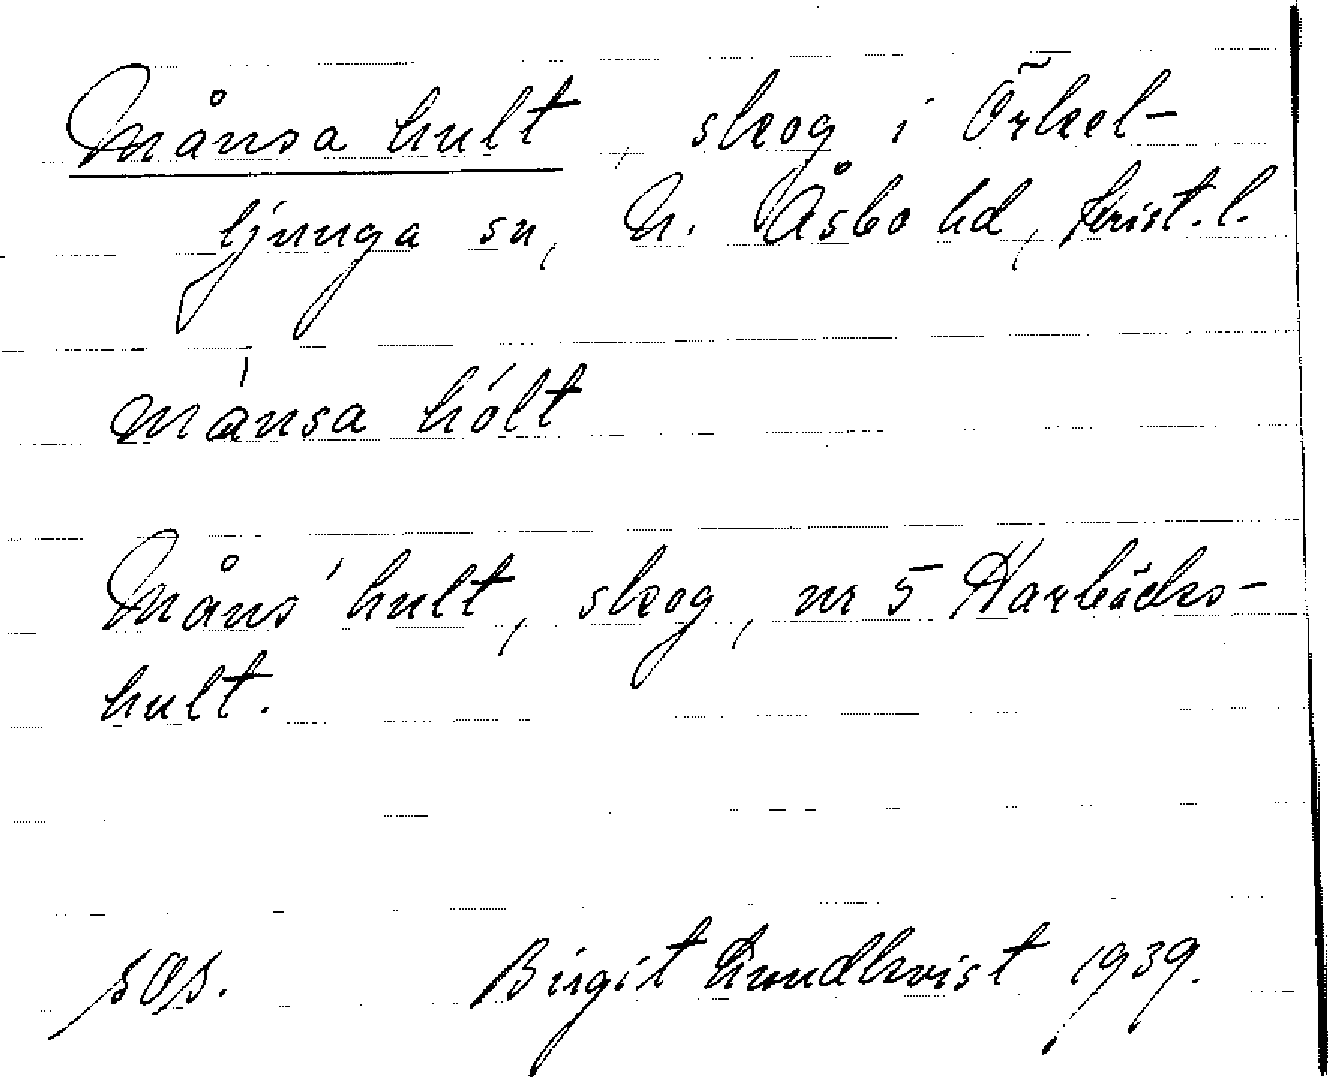 Månsa hult, skog i Örkel-
ljunga sn, N. Åsbo hd, Krist. l.
mánsa hólt
Måns' hult, skog, nr 5 Harbäcks-
hult.
SOS. Birgit Lundkvist 1939.